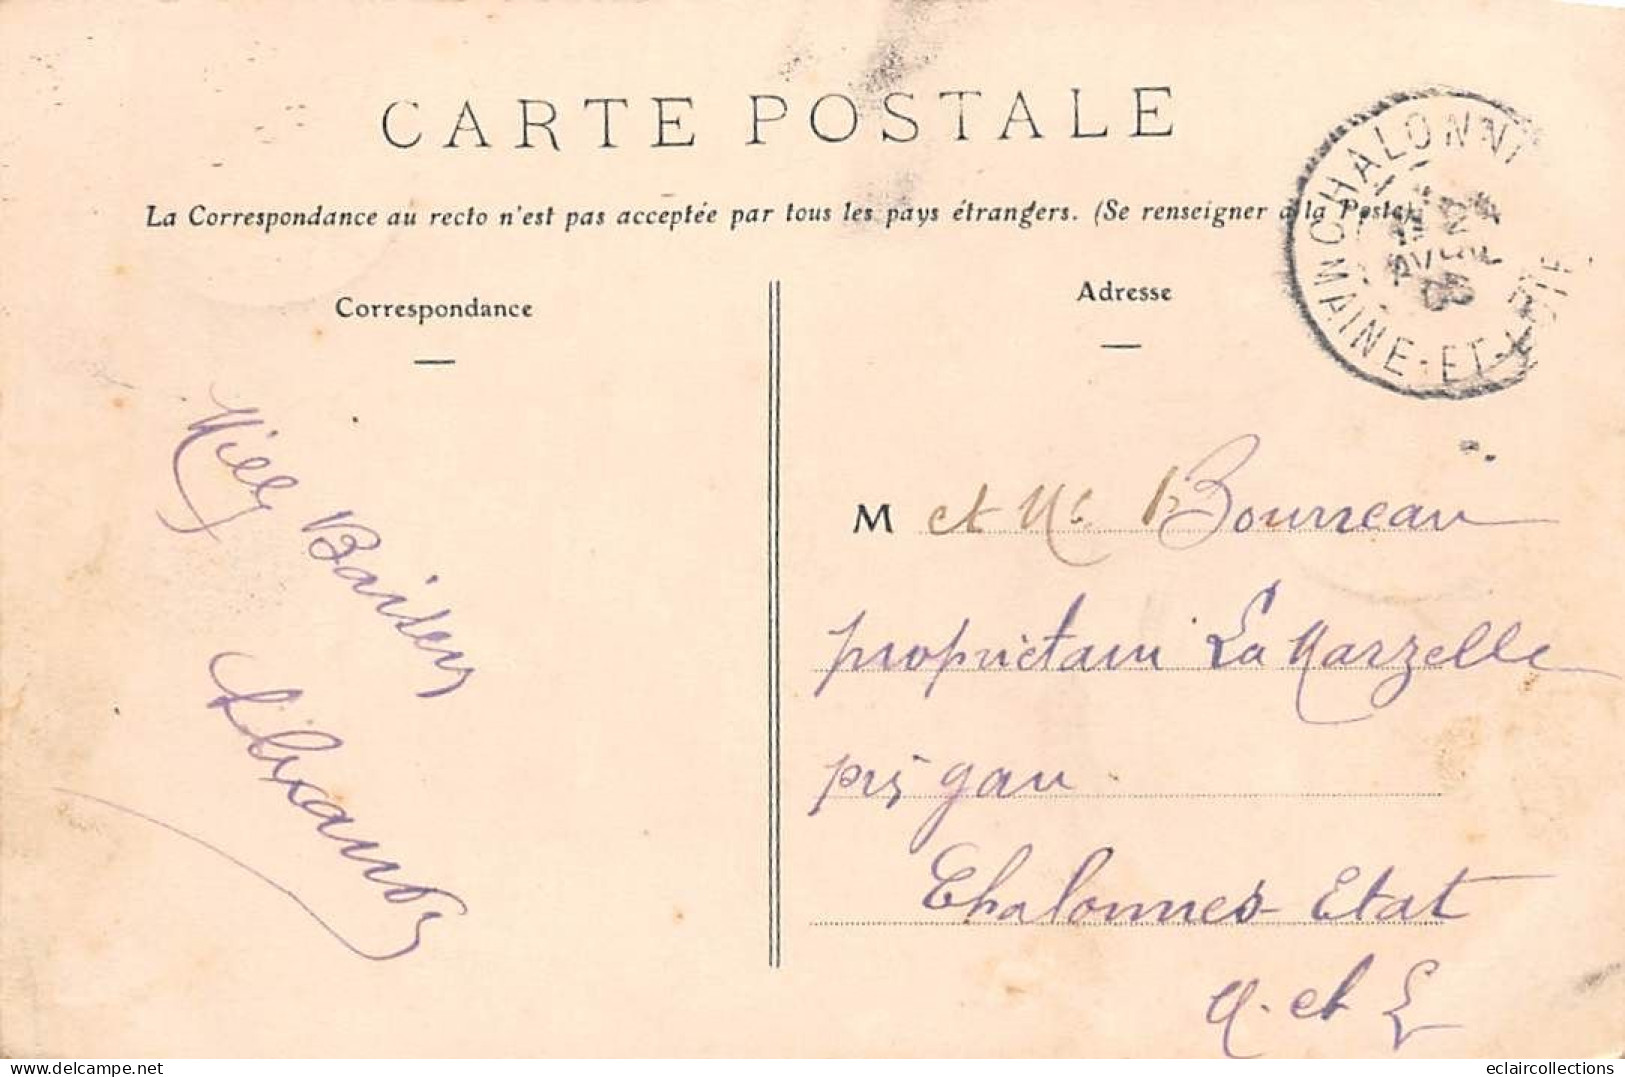 CARTE POSTALE
La Correspondance au recto n'est pas acceptée par tous les pays étrangers. (Se renseigner à la Poste).
Correspondance
Adresse
CHALONN
MAINE-ET-LOIRE
Baisers
M et Me Bourreau
propriétaire La Marzelle
près gare
Chalonnes-Etat
M. et L
eclaircollections